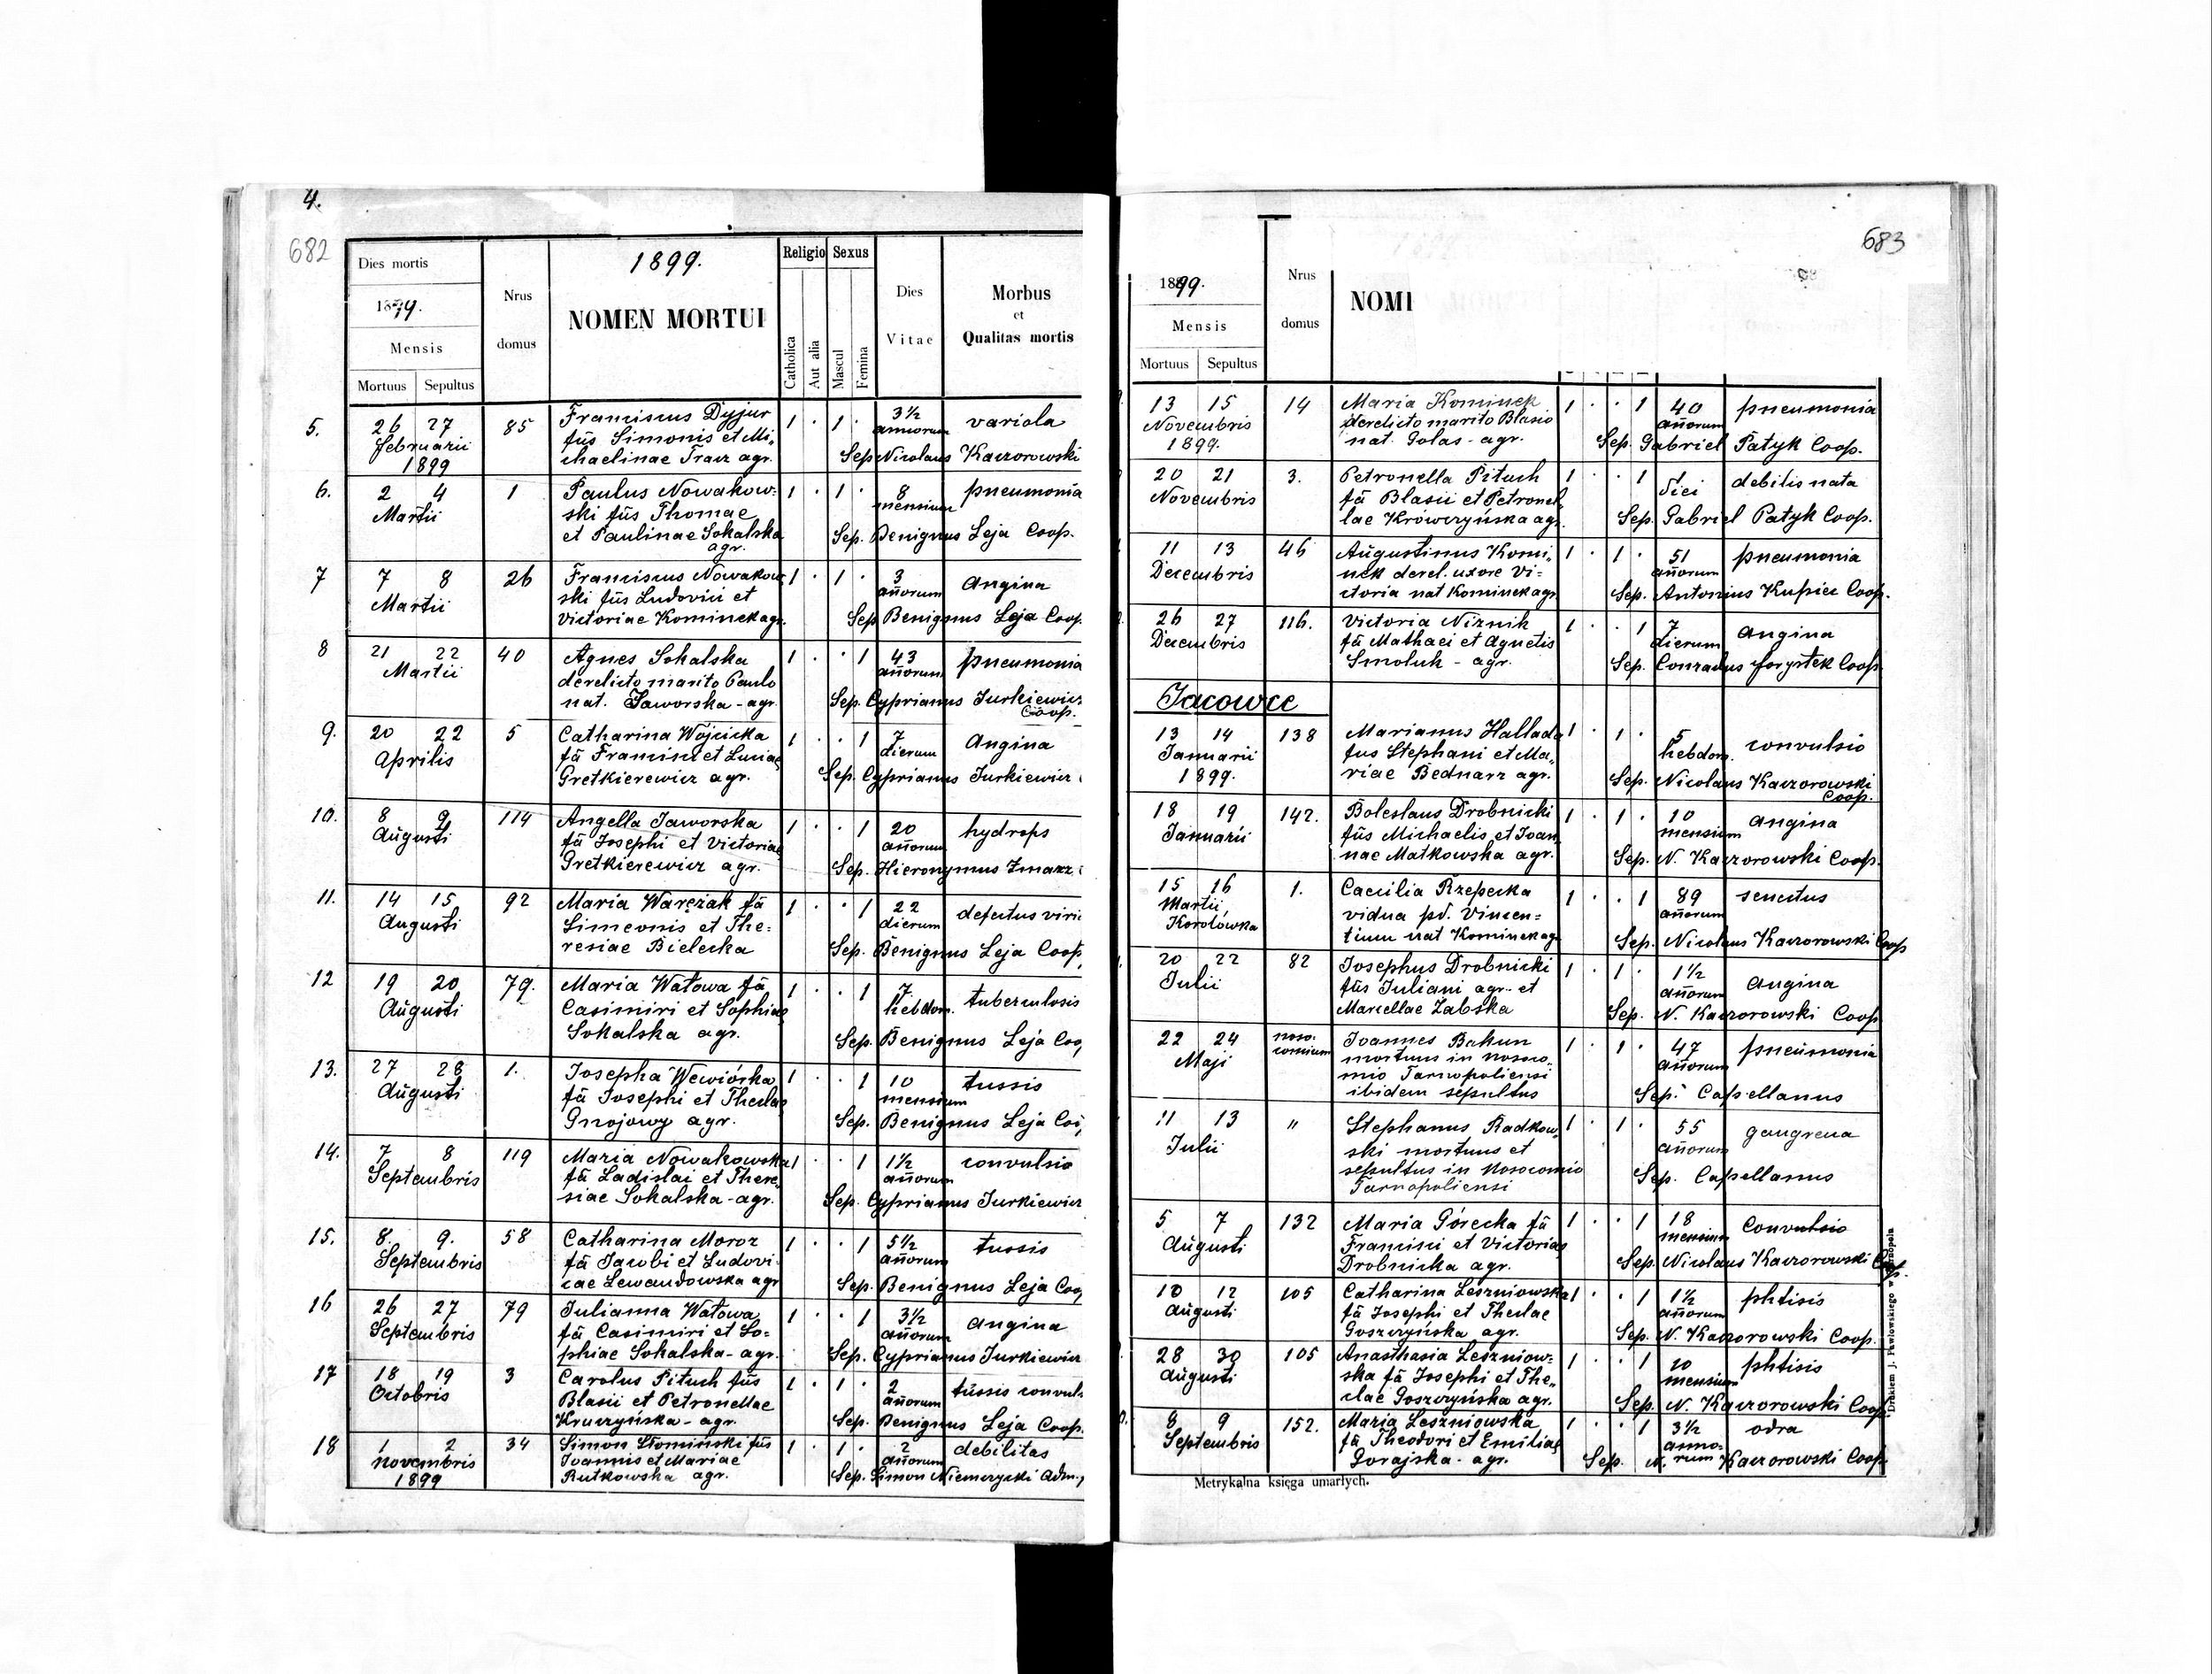 4.
682
Dies mortis
1899.
Mensis
Mortuus Sepultus
Nrus domus
1899.
NOMEN MORTUI
Religio
Catholica
Aut alia
Sexus
Mascul
Femina
Dies Vitae
Morbus
et
Qualitas mortis
5. 26 27 85 Franciscus Dyjur 1 · 1 · 3½ variola
Februarii fũs Simonis et Mi„ annorum
1899 chaelinae Tracz agr. Sep Nicolaus Kaczorowski
6. 2 4 1 Paulus Nowakow= 1 · 1 · 8 pneumonia
Martii ski fũs Thomae mensium
et Paulinae Sokalska Sep. Benignus Leja Coop.
agr.
7 7 8 26 Franciscus Nowakow 1 · 1 · 3 Angina
Martii ski fũs Ludovici et añorum
Victoriae Kominek agr. Sep Benignus Leja Coop.
8 21 22 40 Agnes Sokalska 1 · · 1 43 pneumonia
Martii derelicto marito Paulo añorum
nat. Jaworska - agr. Sep. Cyprianus Jurkiewicz
Coop.
9. 20 22 5 Catharina Wójcicka 1 · · 1 7 Angina
Aprilis fã Francisci et Luciae dierum
Gretkierewicz agr. Sep. Cyprianus Jurkiewicz
10. 8 9 114 Angella Jaworska 1 · · 1 20 hydrops
Augusti fã Josephi et Victoriae añorum
Gretkierewicz agr. Sep. Hieronymus
11. 14 15 92 Maria Warężak fã 1 · · 1 22 defectus
Augusti Simeonis et The= dierum
resiae Bielecka Sep. Benignus Leja Coop
12 19 20 79. Maria Watowa fã 1 · · 1 7 tuberculosis
Augusti Casimiri et Sophiae hebdom.
Sokalska agr. Sep. Benignus Leja
13. 27 28 1. Josepha Wewiórka 1 · · 1 10 tussis
Augusti fã Josephi et Theclae mensium
Gnojowy agr. Sep. Benignus Leja
14. 7 8 119 Maria Nowakowska 1 · · 1 1½ convulsio
Septembris fã Ladislai et There„ añorum
siae Sokalska - agr. Sep. Cyprianus Jurkiewicz
15. 8. 9. 58 Catharina Moroz 1 · · 1 5½ tussis
Septembris fã Jacobi et Ludovi añorum
cae Lewandowska agr Sep. Benignus Leja
16 26 27 79 Julianna Watowa 1 · · 1 3½ Angina
Septembris fã Casimiri et So= añorum
phiae Sokalska - agr. Sep. Cyprianus Jurkiewicz
17 18 19 3 Carolus Pituch fũs 1 · 1 · 2 tussis convuls
Octobris Blasii et Petronellae añorum
Kruczyńska - agr. Sep. Benignus Leja Coop.
18 1 2 34 Simon Słomiński fũs 1 · 1 · 2 debilitas
Novembris Joannis et Mariae añorum
1899 Rutkowska agr. Sep. Simon Niemczycki Adm.
683
1899.
Mensis
Mortuus Sepultus
Nrus domus
NOMI
13 15 14 Maria Kominek 1 · · 1 40 pneumonia
Novembris derelicto marito Blasio añorum
1899. nat. Golas - agr. Sep. Gabriel Patyk Coop.
20 21 3. Petronella Pituch 1 · · 1 5 debilis nata
Novembris fã Blasii et Petronel„
lae Krówczyńska agr. Sep. Gabriel Patyk Coop.
11 13 46 Augustinus Komi„ 1 · 1 · 51 pneumonia
Decembris nek derel. uxore Vi= añorum
ctoria nat Kominek agr Sep. Antonius Kupiec Coop.
26 27 116. Victoria Niznik 1 · · 1 7 Angina
Decembris fã Mathaei et Agnetis dierum
Smoluk - agr. Sep. Conradus Forystek Coop
Jacowce
13 14 138 Marianus Hallada 1 · 1 · 5 convulsio
Januarii fus Stephani et Ma„ hebdom.
1899. riae Bednarz agr. Sep. Nicolaus Kaczorowski
Coop.
18 19 142. Boleslaus Drobnicki 1 · 1 · 10 Angina
Januarii fũs Michaelis et Joan„ mensium
nae Matkowska agr. Sep. N. Kaczorowski Coop.
15 16 1. Caecilia Rzepecka 1 · · 1 89 senectus
Martii vidua pd. Vincen= añorum
Korolówka tium nat Kominek agr Sep. Nicolaus Kaczorowski Coop
20 22 82 Josephus Drobnicki 1 · 1 · 1½ Angina
Julii fũs Juliani agr. et añorum
Marcellae Zabska Sep. N. Kaczorowski Coop
22 24 noso- Joannes Bakun 1 · 1 · 47 pneumonia
Maji comium mortuus in nosoco„ añorum
mio Tarnopoliensi
ibidem sepultus Sep. Capellanus
11 13 " Stephanus Radkow„ 1 · 1 · 55 gangrena
Julii ski mortuus et añorum
sepultus in Nosocomio Sep. Capellanus
Tarnopoliensi
5 7 132 Maria Górecka fã 1 · · 1 18 Convulsio
Augusti Francisci et Victoriae mensium
Drobnicka agr. Sep. Nicolaus Kaczorowski Coop.
10 12 105 Catharina Leszniowska 1 · · 1 1½ phtisis
Augusti fã Josephi et Theclae añorum
Goszczyńska agr. Sep. N. Kaczorowski Coop.
28 30 105 Anasthasia Leszniow= 1 · · 1 10 phtisis
Augusti ska fã Josephi et The„ mensium
clae Goszczyńska agr. Sep. N. Kaczorowski Coop
8 9 152. Maria Leszniowska 1 · · 1 3½ odra
Septembris fã Theodori et Emiliae anno-
Gorajska - agr. Sep. N. rum Kaczorowski Coop
Metrykalna księga umarłych.
Drukiem J. Pawłowskiego w Tarnopolu